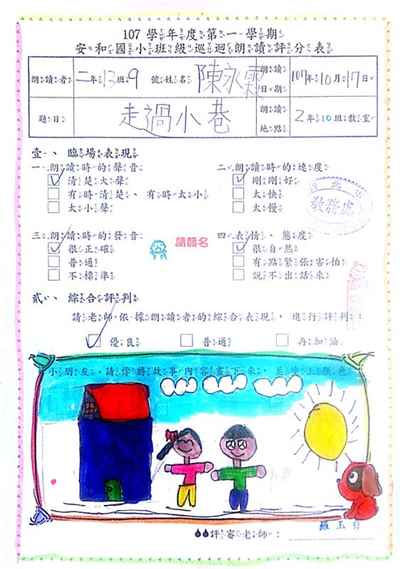 107學年度第一學期
安和國小班級巡迴朗讀評分表
朗讀者 二年13班9號姓名 陳永霖 朗讀日期 107年10月17日
題目 走過小巷 朗讀地點 2年10班教室
壹、臨場表現
一、朗讀時的聲音 二、朗讀時的速度
清楚大聲 剛剛好
有時清楚、有時太小 太快
太小聲 太慢
教務處
三、朗讀時的發音 四、表情、態度
請簽名
很正確 很自然
普通 有點緊張害怕
不標準 說不出話來
貳、綜合評判
請老師依據朗讀者的綜合表現,進行評判
優良 普通 再加油
小朋友,請你將故事內容畫下來,並塗上顏色
評審老師: